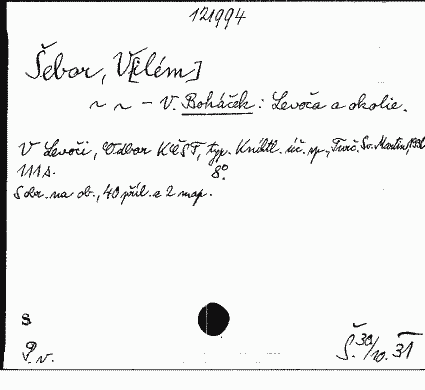 121994
Šebor, V[ilém]
~ ~ – V. Boháček: Levoča a okolie.
V Levoči, Odbor KČST, typ. Knihtl. úč. sp., Turč. Sv. Martin, 1931
111 s. 8°.
S obr. na ob., 40 příl. a 2 map.
S
P. v.
Š. 30/10. 31